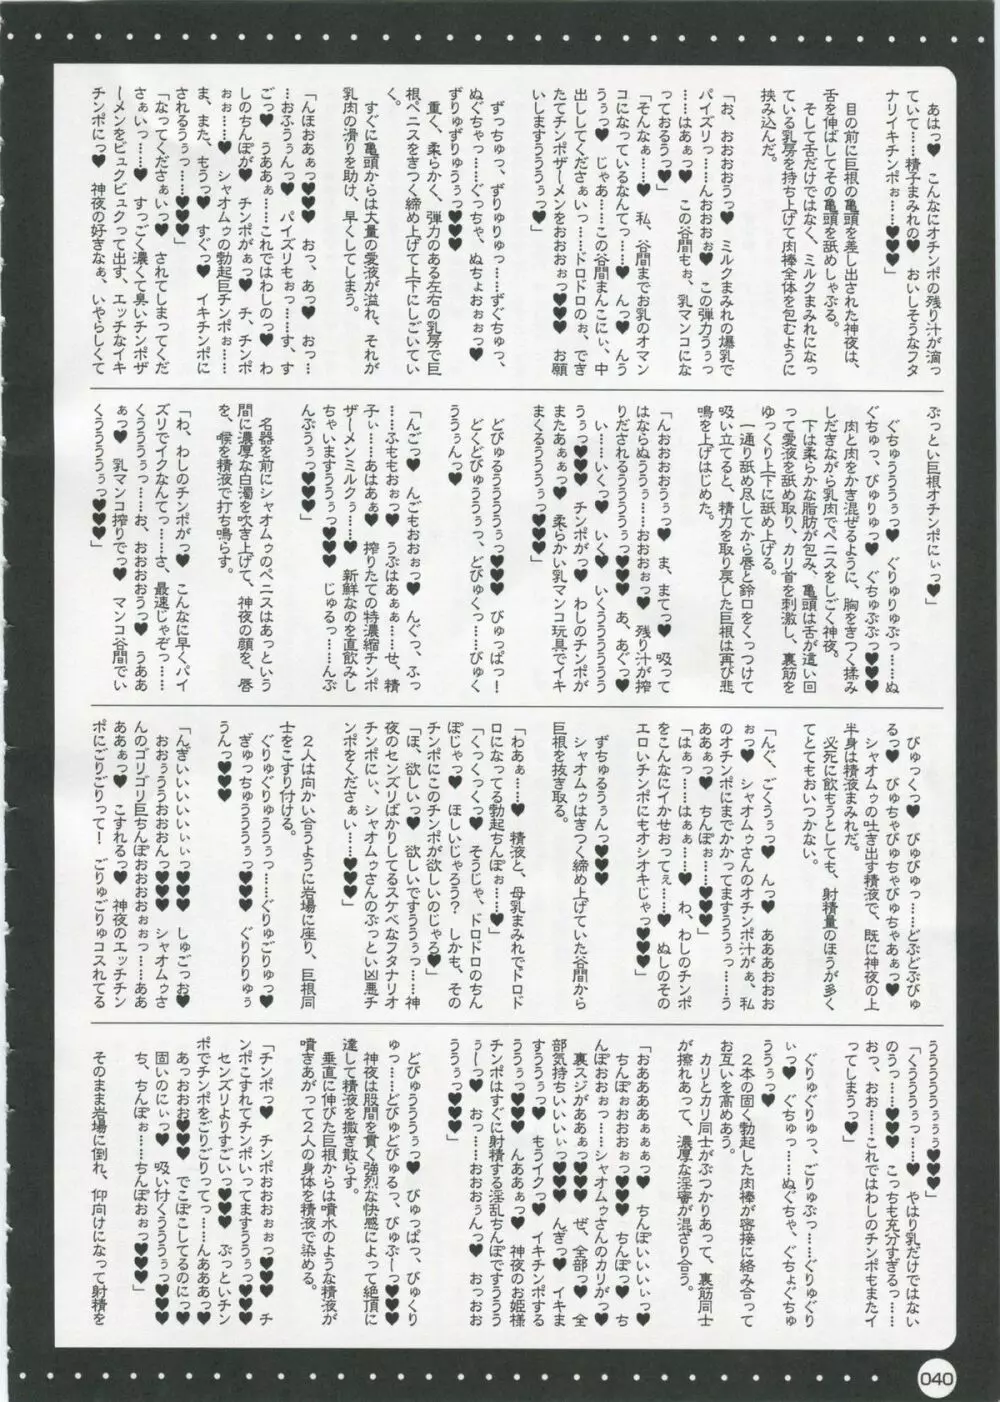 あはっ♥　こんなにオチンポの残り汁が滴っ
ていて……精子まみれの♥　おいしそうなフタ
ナリイキチンポぉ……♥♥♥」
目の前に巨根の亀頭を差し出された神夜は、
舌を伸ばしてその亀頭を舐めしゃぶる。
そして舌だけではなく、ミルクまみれになっ
ている乳房を持ち上げて肉棒全体を包むように
挟み込んだ。
「お、おおおおうっ♥　ミルクまみれの爆乳で
パイズリっ……んおおおぉ♥　この弾力うぅっ
……はあぁっ♥　この谷間もぉ、乳マンコにな
っておるうっ♥」
「そんなぁ……♥　私、谷間までお乳のオマン
コになっているなんてっ……♥　んっ♥　んう
うぅっ♥　じゃあ……この谷間まんこにぃ、中
出ししてくださぁいっ……ドロドロのぉ、でき
たてチンポザーメンをおおおぉっ♥♥♥　お願
いしますうううぅっ♥」
ずっちゅっ、ずりゅりゅっ……ずぐちゅっ、
ぬぐちゃっ……ぐっちゃ、ぬちょおぉぉっ♥
ずりゅずりゅうぅっ♥♥♥
重く、柔らかく、弾力のある左右の乳房で巨
根ペニスをきつく締め上げて上下にしごいてい
く。
すぐに亀頭からは大量の愛液が溢れ、それが
乳肉の滑りを助け、早くしてしまう。
「んほおあぁっ♥♥♥♥　おっ、あっ♥　おっ…
…おふうぅんっ♥　パイズリもぉっ……す、す
ごっ♥　うああぁ……これではわしのっ♥　わ
しのちんぽが♥　チンポがぁっ♥　チ、チンポ
ぉぉ……♥　シャオムゥの勃起巨チンポぉ……
ま、また、もうっ♥　すぐっ♥　イキチンポに
されるうぅっ……♥♥♥」
「なってくださぁいっ♥　されてしまってくだ
さぁいっ……♥　すっごく濃くて臭いチンポザ
ーメンをビュクビュクって出す、エッチなイキ
チンポにっ♥　神夜の好きなぁ、いやらしくて
ぶっとい巨根オチンポにぃっ♥」
ぐちゅうううぅっ♥　ぐりゅりゅぶっ……ぬ
ぐちゅっ、びゅりゅっ♥　ぐちゅぶぶっ♥♥♥
肉と肉をかき混ぜるように、胸をきつく揉み
しだきながら乳肉でペニスをしごく神夜。
下は柔らかな脂肪が包み、亀頭は舌が這い回
って愛液を舐め取り、カリ首を刺激し、裏筋を
ゆっくり上下に舐め上げる。
一通り舐め尽してから唇と鈴口をくっつけて
吸い立てると、精力を取り戻した巨根は再び悲
鳴を上げはじめた。
「んおおおおうぅっ♥　ま、まてっ♥　吸って
はならぬうぅ……おおおぉっ♥　残り汁が搾
りだされるうううぅっ♥♥♥　あ、あぐっ♥
い……いくっ♥　いく♥　いくううううう
うぅっ♥♥♥　チンポがっ♥　わしのチンポが
またあぁぁっ♥　柔らかい乳マンコ玩具でイキ
まくるうううぅっ♥」
どびゅるううううぅっ♥♥♥　びゅっぱっ！
どくどびゅううぅっ、どびゅくっ……びゅく
ううぅんっ♥
「んごっ♥　んごもおおぉっ♥　んぐっ、ふっ
……ふももおぉっ♥　うぷはあぁぁ……せ、精
子ぃ……あはあぁ♥　搾りたての特濃縮チンポ
ザーメンミルクぅ……♥　新鮮なのを直飲みし
ちゃいますううぅっ♥♥♥　じゅるっ……んぶ
んぶううぅっ♥♥♥」
名器を前にシャオムゥのペニスはあっという
間に濃厚な白濁を吹き上げて、神夜の顔を、唇
を、喉を精液で打ち鳴らす。
「わ、わしのチンポがっ♥　こんなに早くパイ
ズリでイクなんてっ……さ、最速じゃぞっ……
くうううぅっ……お、おおおおうっ♥　うああ
あぁっ♥　乳マンコ搾りでっ♥　マンコ谷間でい
くううううぅっ♥♥♥」
びゅっくっ♥　びゅびゅっ……どぶどぶびゅ
るっ♥　びゅちゃびゅちゃびゅちゃあぁっ♥
シャオムゥの吐き出す精液で、既に神夜の上
半身は精液まみれだ。
必死に飲もうとしても、射精量のほうが多く
てとてもおいつかない。
「んぐ、ごくうぅっ♥　んっ♥　ああおおお
ぉっ♥　シャオムゥさんのオチンポ汁がぁ、私
のオチンポにまでかかってますううぅっ……う
ああぁっ♥　ちんぽぉ……♥♥♥」
「はぁっ……はぁぁ……♥　わ、わしのチンポ
をこんなにイかせおってぇ……♥　ぬしのその
エロいチンポにもオシオキじゃっ♥♥♥」
ずちゅるうぅんっ♥♥♥
シャオムゥはぎつく締め上げていた谷間から
巨根を抜き取る。
「わあぁ……♥　精液と、母乳まみれでドロド
ロになってる勃起ちんぽぉ……♥」
「くっくっくっ♥　そうじゃ、ドロドロのちん
ぽじゃっ♥　ほしいじゃろう？　しかも、その
チンポにこのチンポが欲しいのじゃろ♥」
「ほ、欲しいっ♥　欲しいですううぅっ……神
夜のセンズリばかりしてるスケベなフタナリオ
チンポにぃ、シャオムゥさんのぶっとい凶悪チ
ンポをくださぁい……♥♥♥」
２人は向かい合うように岩場に座り、巨根同
士をこすり付ける。
ぐりゅぐりゅうぅっ……ぐりゅごりゅっ♥
ぎゅっちゅううぅっ♥♥♥　ぐりりりゅぅ
うんっ♥♥♥
「んぎいいいいいぃっ♥♥♥　しゅごっお♥
おおぅううおおおんっ♥♥♥♥　シャオムゥさ
んのゴリゴリ巨ちんぽおおおおぉぉっ……ああ
ああぁっ♥　こすれるっ♥　神夜のエッチチン
ポにごりごりって！　ごりゅごりゅコスれてる
うううううぅぅ♥♥♥」
「くうううぅっ……♥　やはり乳だけではない
のうっ……♥♥　こっちも充分すぎるっ……
おっ、おお……これではわしのチンポもまたイ
ってしまうっ♥」
ぐりゅぐりゅっ、ごりゅぶっ……ぐりゅぐり
いっ♥　ぐちゅっ……ぬぐちゃ、ぐちょぐちゅ
ううぅっ♥
２本の固く勃起した肉棒が密接に絡み合って
お互いを高めあう。
カリとカリ同士がぶつかりあって、裏筋同士
が擦れあって、濃厚な淫蜜が混ざり合う。
「おああああぁぁぁっ♥　ちんぽいいぃぃっ♥
ちんぽおおおおぉっ♥♥♥　ちんぽっ♥　ち
んぽおおぉっ……シャオムゥさんのカリがっ♥
裏スジがああぁっ♥♥♥　ぜ、全部っ♥　全
部気持ちいいいいぃっ♥♥♥　んぎっ♥　イキま
すううぅっ♥♥♥　もうイクっ♥　イキチンポする
ううぅっ♥♥♥　んああぁっ♥　神夜のお姫様
チンポはすぐに射精する淫乱ちんぽですううう
ぅーっ♥　おっ……おおおうぅんっ♥　おっおお
うううぅっ♥♥♥」
どびゅうううぅっ♥　びゅっぱっ、びゅくり
ゅっ……どびゅどびゅるっ、びゅぶーっ♥♥♥
神夜は股間を貫く強烈な快感によって絶頂に
達して精液を撒き散らす。
垂直に伸びた巨根からは噴水のような精液が
噴きあがって２人の身体を精液で染める。
「チンポっ♥　チンポおおおぉっ♥♥♥　チ
ンポこすれてチンポいってますううぅっ♥♥♥
センズリよりすごいっ♥♥♥♥　ぶっといチン
ポでチンポをごりごりってっ……んあああっ♥
あっおおおおっ♥♥♥　でこぼこしてるのにっ♥
固いのにいっ♥　吸い付くうううぅっ♥♥♥
ち、ちんぽぉ……ちんぽおぉっ♥♥♥」
そのまま岩場に倒れ、仰向けになって射精を
040